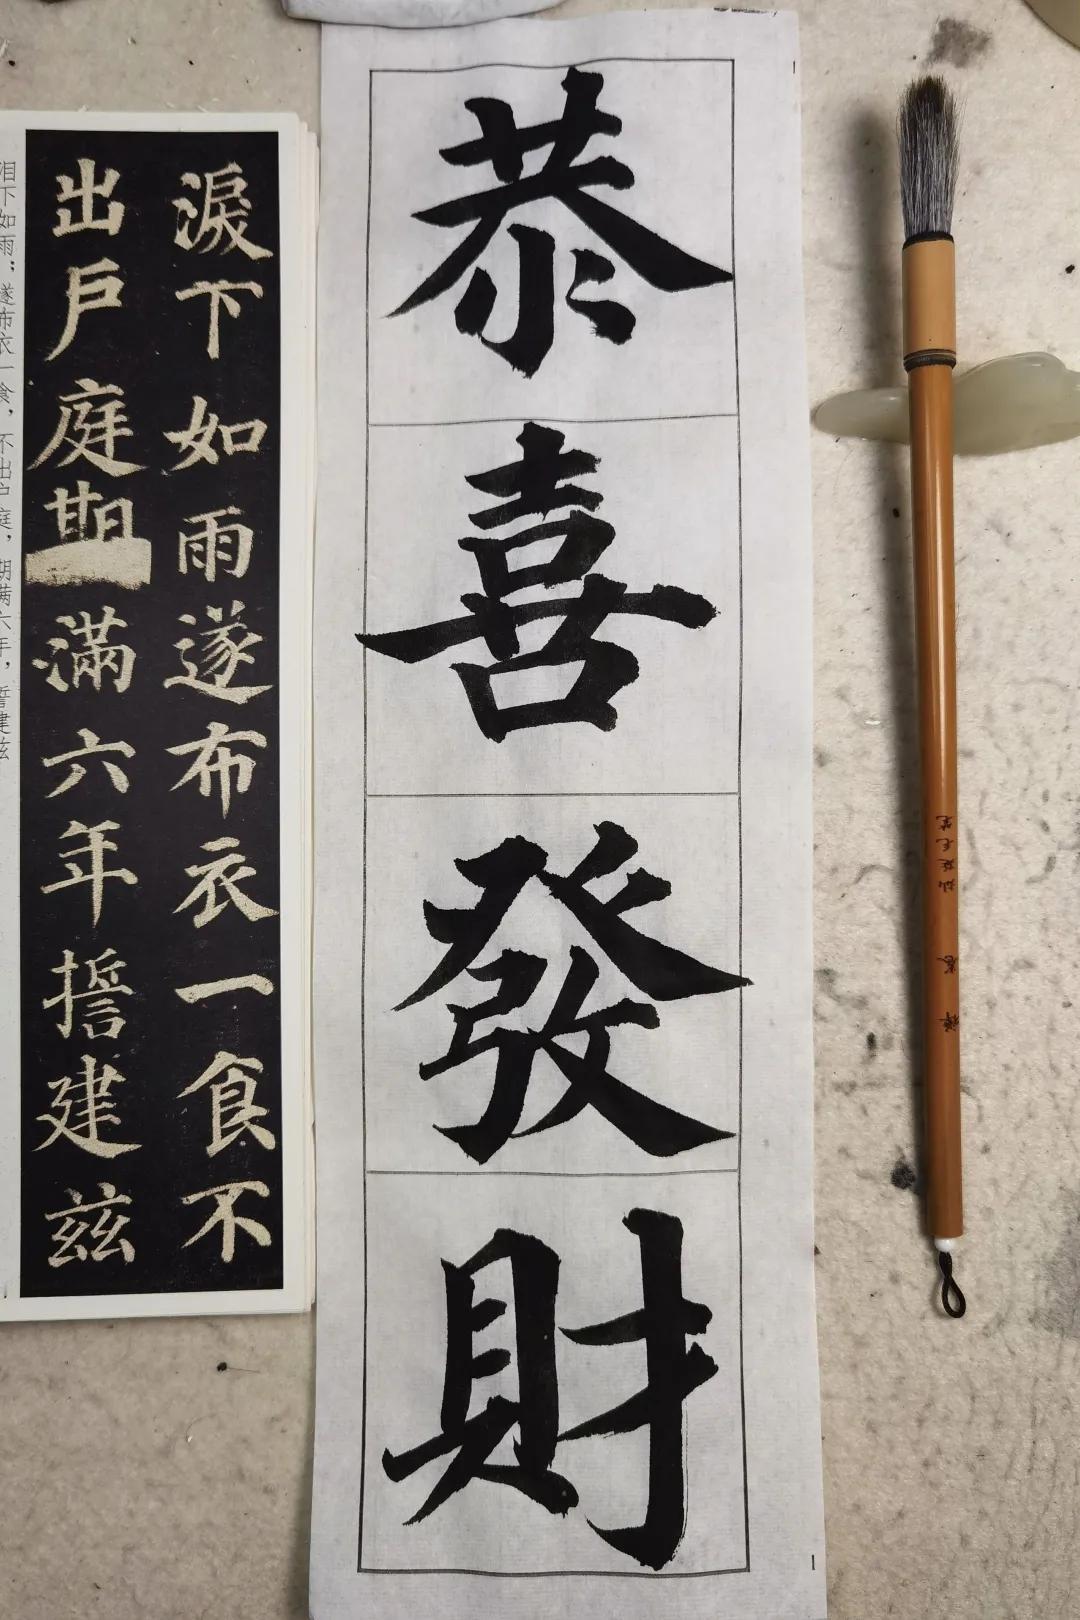 恭喜發財
淚下如雨遂布衣一食不
出戶庭期滿六年誓建兹
泪下如雨；遂布衣一食，不出户庭，期满六年，誓建兹